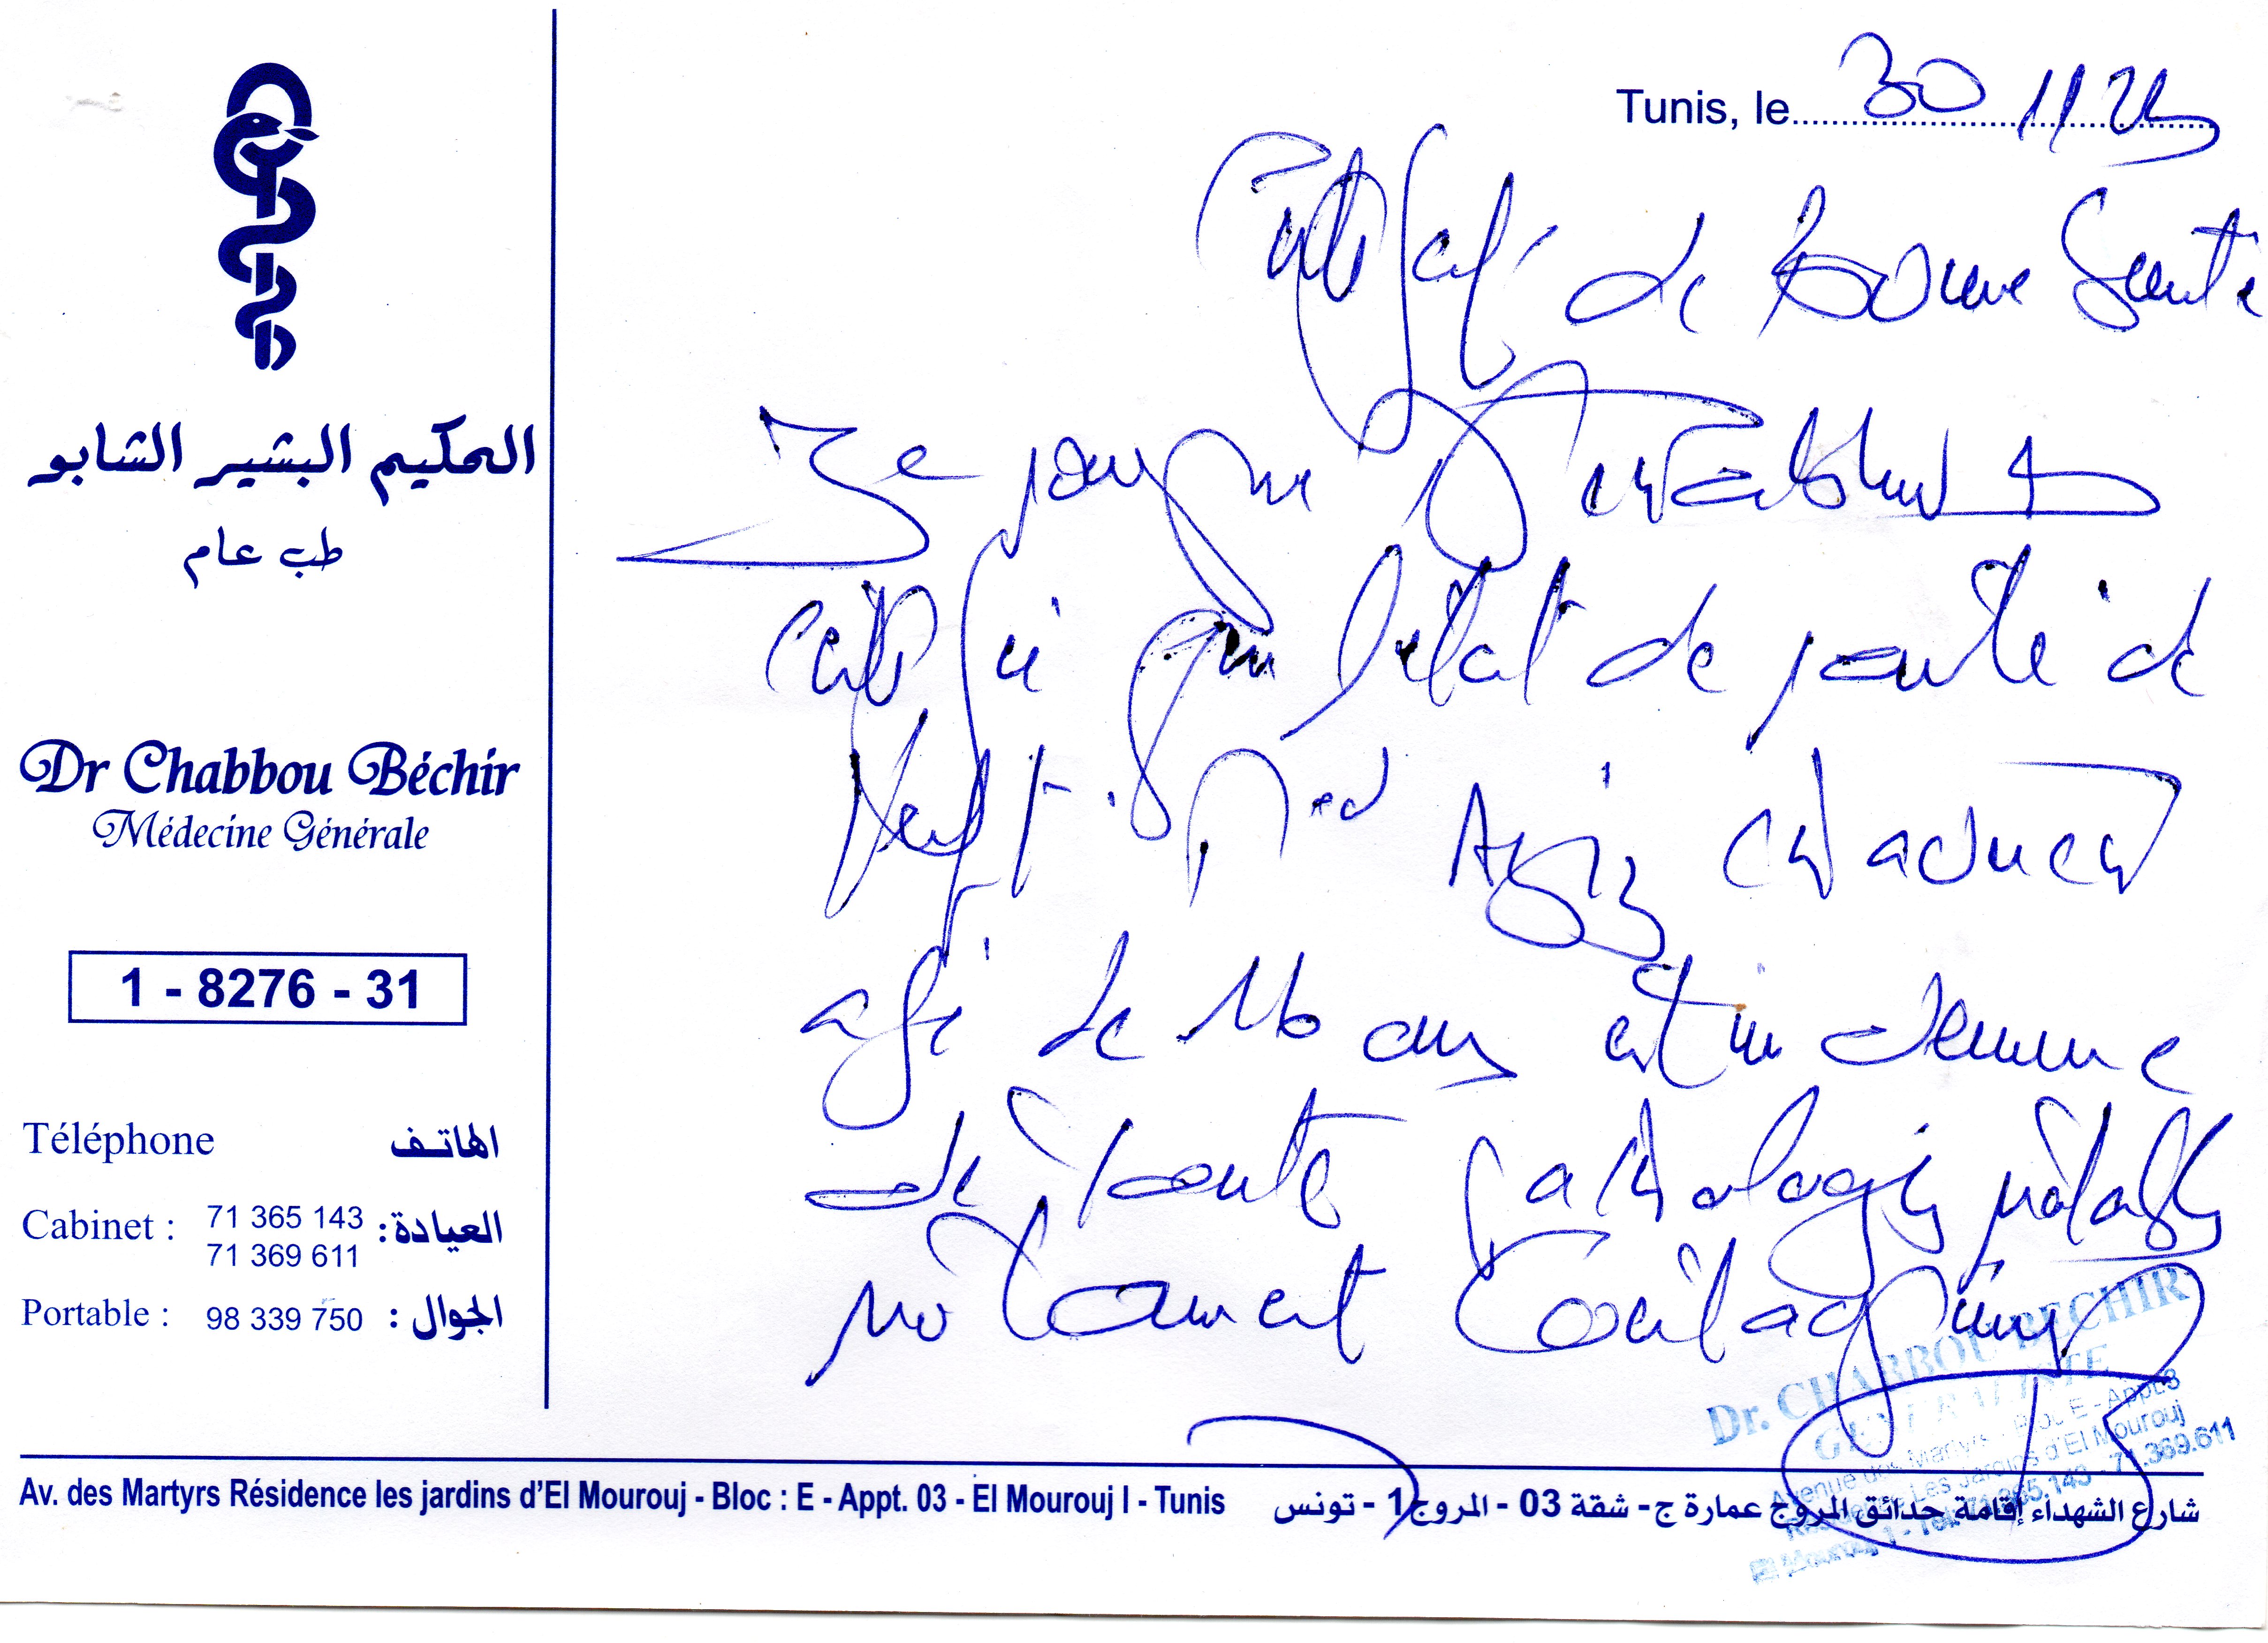 Tunis, le 30 11 23
Certificat de bonne Santé
Je soussigné
certifie que l'état de santé de
l'enfant Med Aziz
agé de 16 ans est indemne
de toute pathologie notable
notamment contagieuse
الحكيم البشير الشابو
طب عام
Dr Chabbou Béchir
Médecine Générale
1 - 8276 - 31
Téléphone الهاتف
Cabinet : 71 365 143 العيادة:
71 369 611
Portable : 98 339 750 الجوال :
Dr. CHABBOU BECHIR
GENERALISTE
Avenue des Martyrs - Bloc E - Appt.3
Résidence Les Jardins d'El Mourouj
El Mourouj 1 - Tél: 71.365.143 - 71.369.611
Av. des Martyrs Résidence les jardins d'El Mourouj - Bloc : E - Appt. 03 - El Mourouj I - Tunis
شارع الشهداء إقامة حدائق المروج عمارة ج- شقة 03 - المروج 1 - تونس